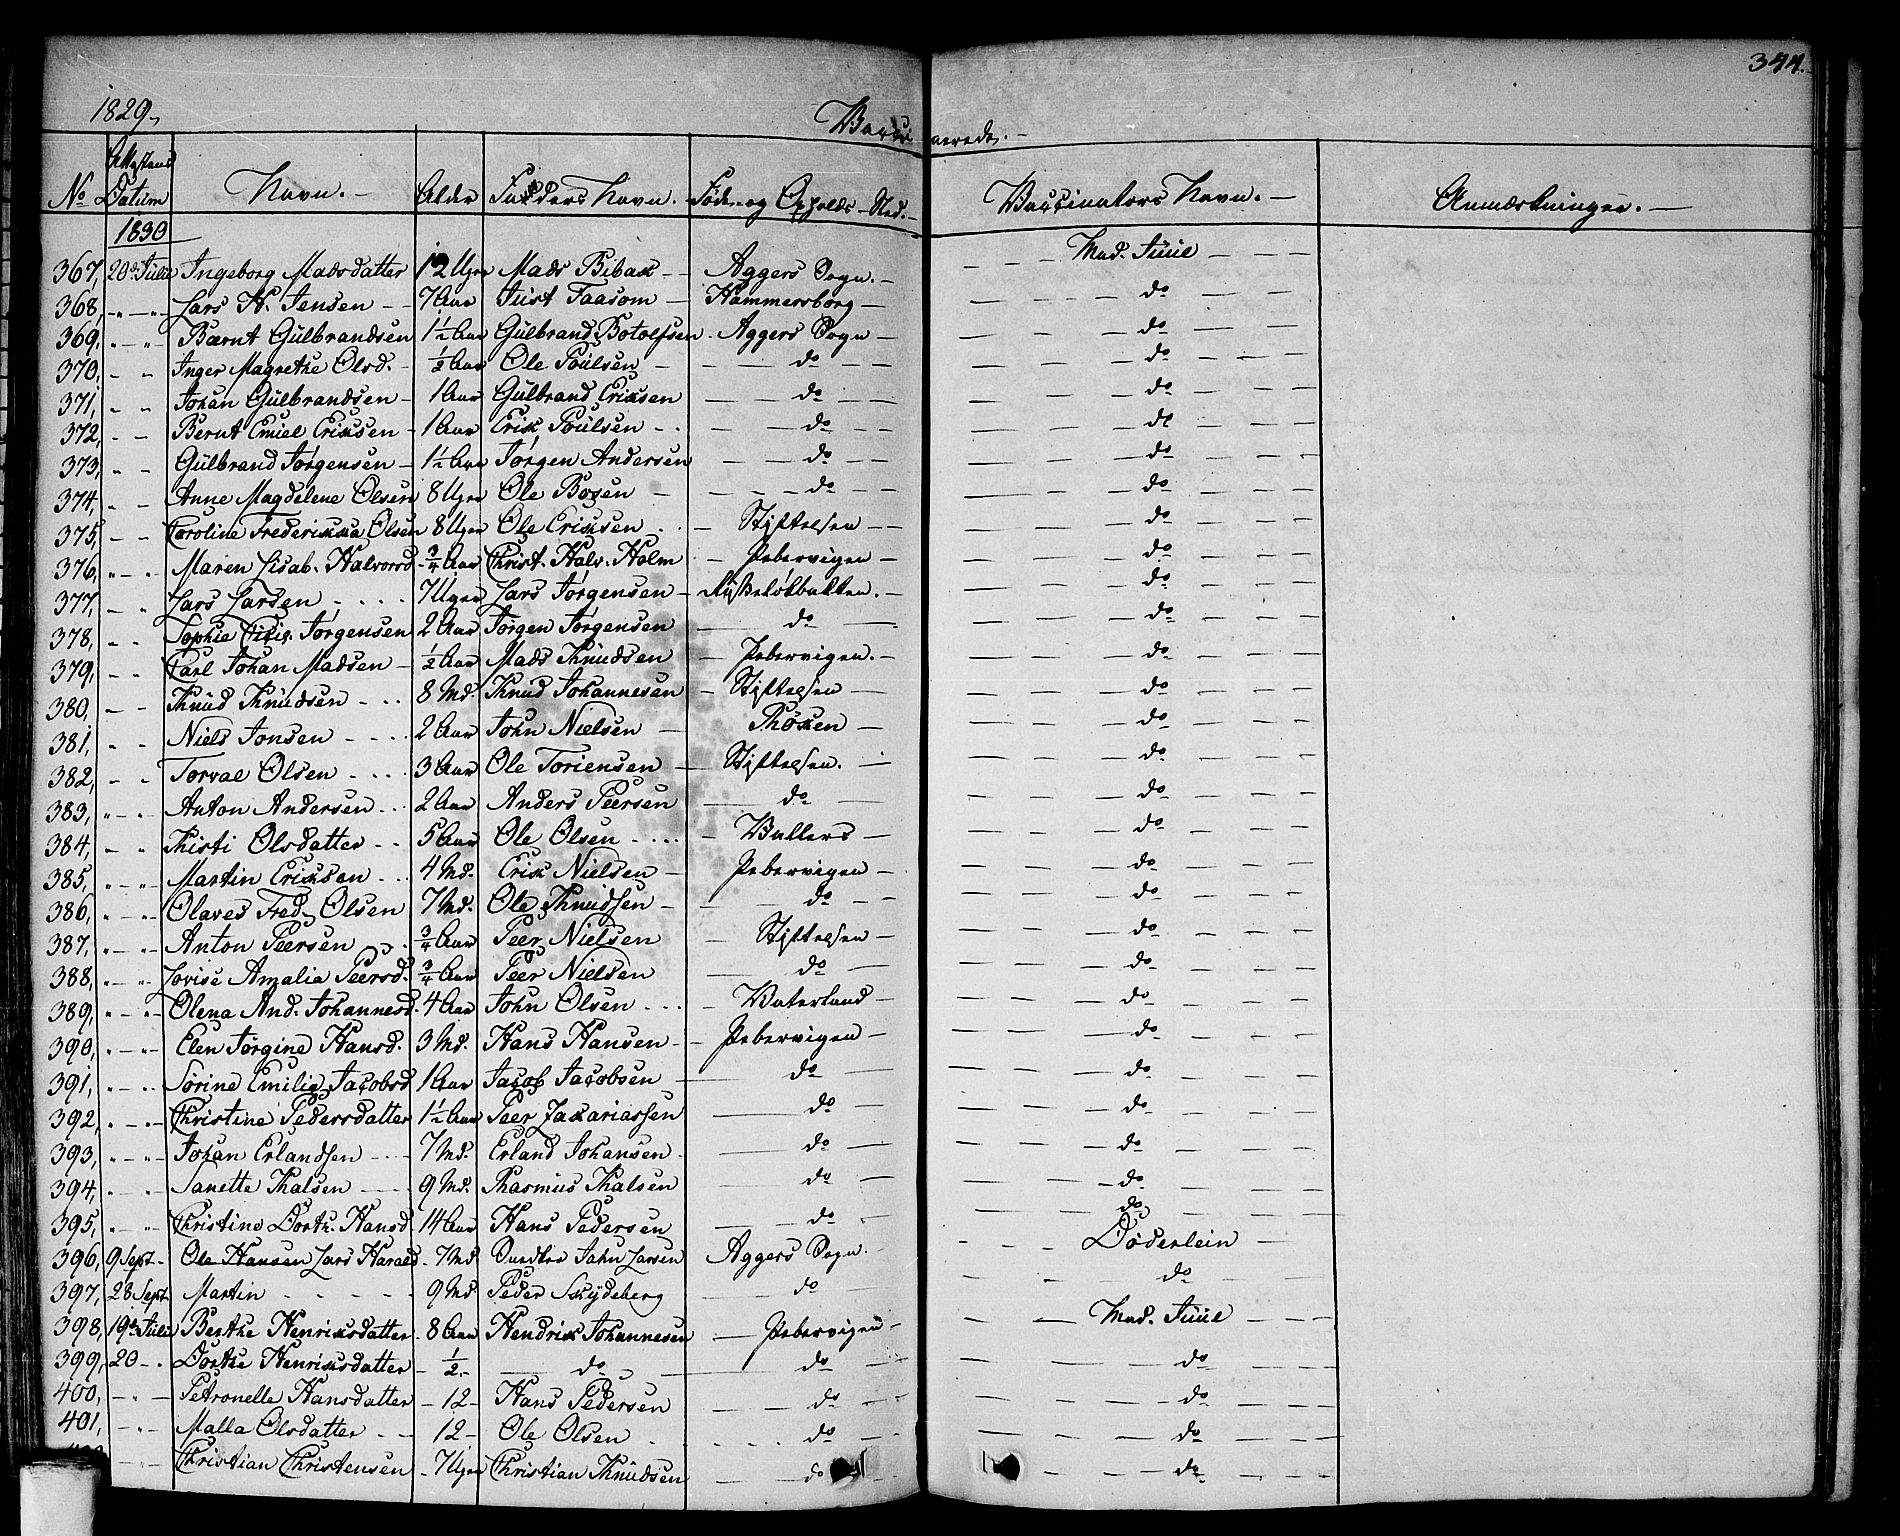 344.
1829,
Vaccinerede. —
No Attestens Datum Navn. — Alder Faders Navn. Føde- og Opholds-Sted. — Vaccinators Navn. — Anmærkninger. —
1830
367, 20de Julii Ingeborg Madsdatter 12 Uger Mads — Aggers Sogn. — Mad. Juul —
368, " " Lars H. Jensen — 7 Aar Just Faasom — Hammersborg — do
369, " " Bærnt Gülbrandsen 1½ Aar Gülbrand Botolfsen Aggers Sogn — do
370, " " Inger Magrethe Olsd. - ½ Aar Ole Poülsen — do — do
371, " " Johan Gülbrandsen - 1 Aar Gülbrand Eriksen — do — do
372, " " Bernt Emiel Eriksen - 1 Aar Erik Poülsen — do — do
373, " " Gülbrand Jørgensen — 1½ Aar Jørgen Andersen — do — do
374, " " Anne Magdelene Olsen 8 Uger Ole Bosen — do — do
375, " " Caroline Frederikka Olsen 8 Uger Ole Eriksen — Stiftelsen — do
376, " " Maren Lisab. Halvorsd ¾ Aar Christ. Halv. Holm — Pebervigen — do
377, " " Lars Larsen 7 Uger Lars Jørgensen — do
378, " " Sophie Jørgensen 2 Aar Jørgen Jørgensen — do — do
379, " " Carl Johan Madsen — ½ Aar Mads Knüdsen — Pebervigen. — do
380, " " Knüd Knüdsen 8 Md. Knud Johannesen — Stiftelsen — do
381, " " Niels Jonsen 2 Aar John Nielsen — do
382, " " Torval Olsen 3 Aar Ole Toriensen — Stiftelsen. — do
383, " " Anton Andersen 2 Aar Anders Peersen — do — do
384, " " Kisti Olsdatter 5 Aar Ole Olsen — Vallers — do
385, " " Martin Eriksen 4 Md. Erik Nielsen — Pebervigen — do
386, " " Olaves Fred. Olsen 7 Md. Ole Knudsen — do — do
387, " " Anton Peersen ¾ Aar Peer Nielsen — Stiftelsen — do
388, " " Lovise Amalia Peersd. ¾ Aar Peer Nielsen — do — do
389, " " Olena And. Johannesd. 4 Aar John Olsen — Vaterland — do
390, " " Elen Jørgine Hansd. 3 Md. Hans Hansen — Pebervigen — do
391, " " Sørine Emilie Jacobsd 1 Aar Jacob Jacobsen — do — do
392, " " Christine Pedersdatter 1½ Aar Peer Zakariassen — do — do
393, " " Johan Erlandsen 7 Md. Erland Johansen — do — do
394, " " Sanette Thalsen 9 Md. Rasmus Thalsen — do — do
395, " " Christine Dorth. Hansd 14 Aar Hans Pedersen — do — do
396, 9 Sept. Ole Hansen Lars Harald 7 Md John Larsen Aggers Sogn. Döderlein —
397, 28 Sept Martin 9 Md Peder Skydeberg — do — do
398, 19de Julii Berthe Henriksdatter 8 Aar Hendrik Johannesen — Pebervigen — Mad. Juul —
399, 20 — Dorthe Henriksdatter - ½ - do — do — do
400, " Petronelle Hansdatter - 12 - Hans Pedersen — do — do
401, " Malla Olsdatter - 12 - Ole Olsen — do — do
" Christian Christensen - 7 Uger Christian Knüdsen — do — do